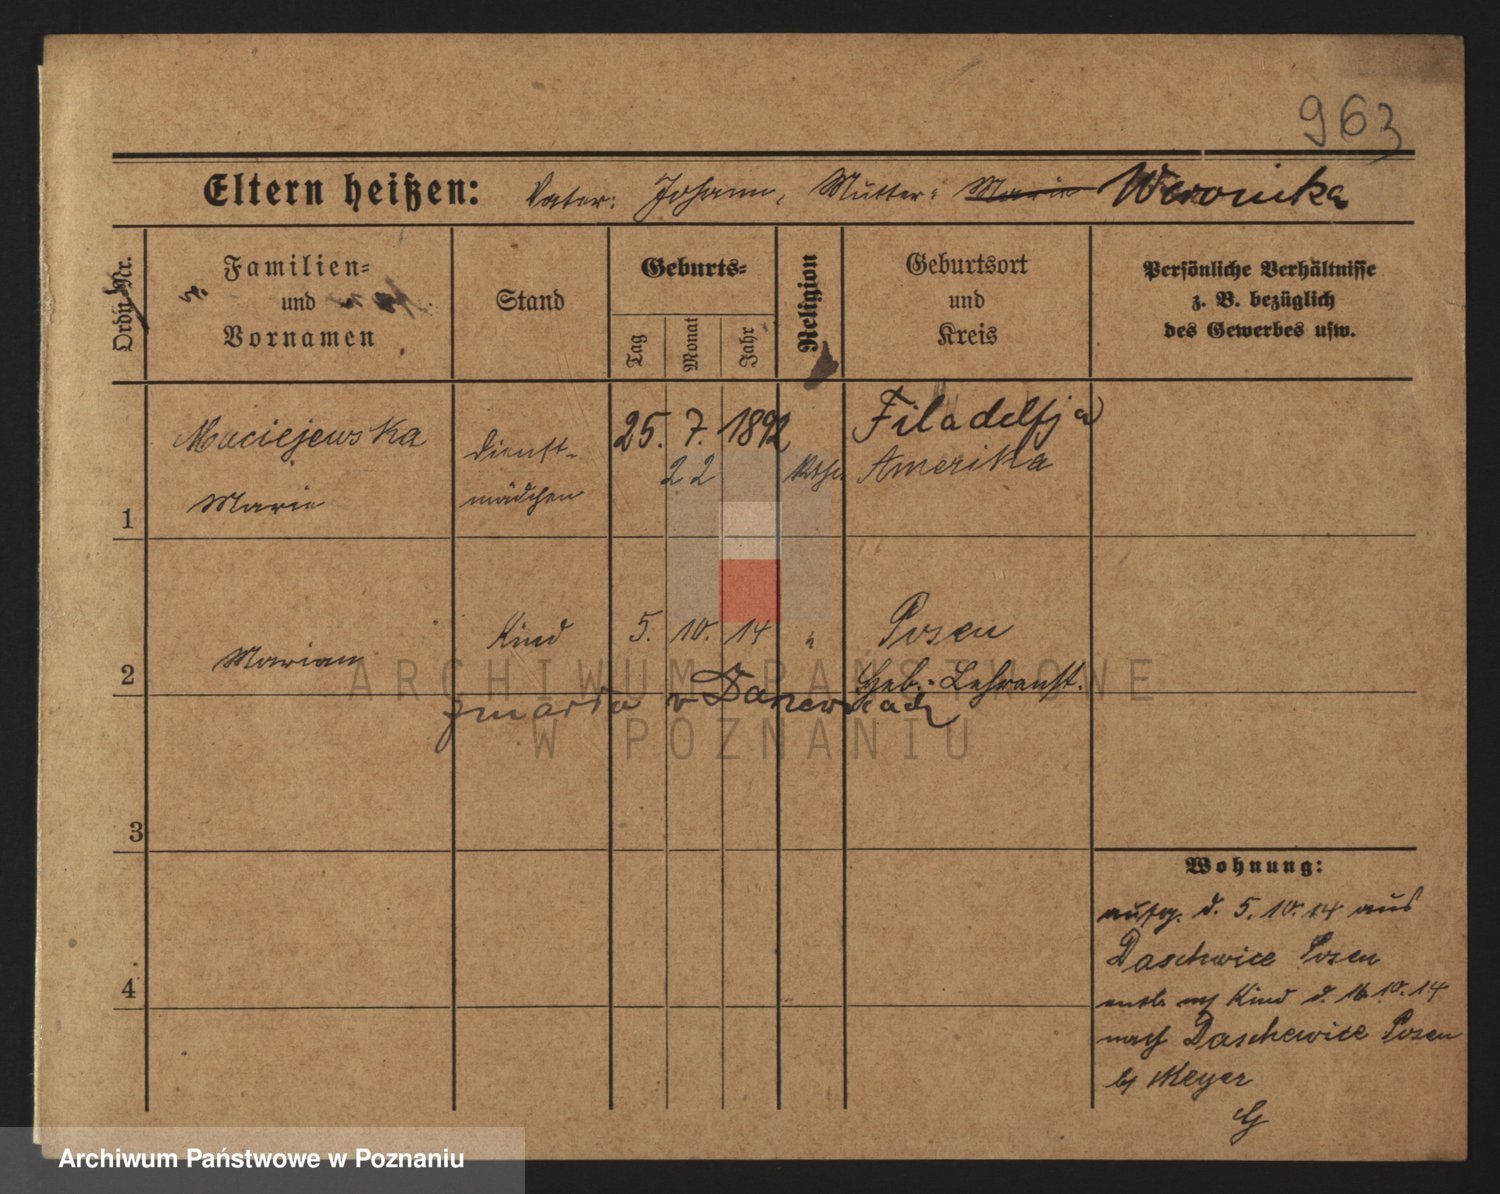 963
Eltern heißen: Vater: Johann, Mutter: Maria Weronika
Ordn. Nr.
Familien=
und
Vornamen
Stand
Geburts=
Tag
Monat
Jahr
Religion
Geburtsort
und
Kreis
Persönliche Verhältnisse
z. B. bezüglich
des Gewerbes usw.
1
Maciejewska
Marie
Dienst-
mädchen
25. 7. 1892
22
kath.
Filadelfja
Amerika
2
Marian
Kind
5. 10. 14
"
Posen
Heb.-Lehranst.
zmarła w
3
4
Wohnung:
aufg. d. 5. 10. 14 aus
Daschewice Posen
entl. Kind d. 16. 10. 14
nach Daschewice Posen
by Meyer
ARCHIWUM PAŃSTWOWE
W POZNANIU
Archiwum Państwowe w Poznaniu